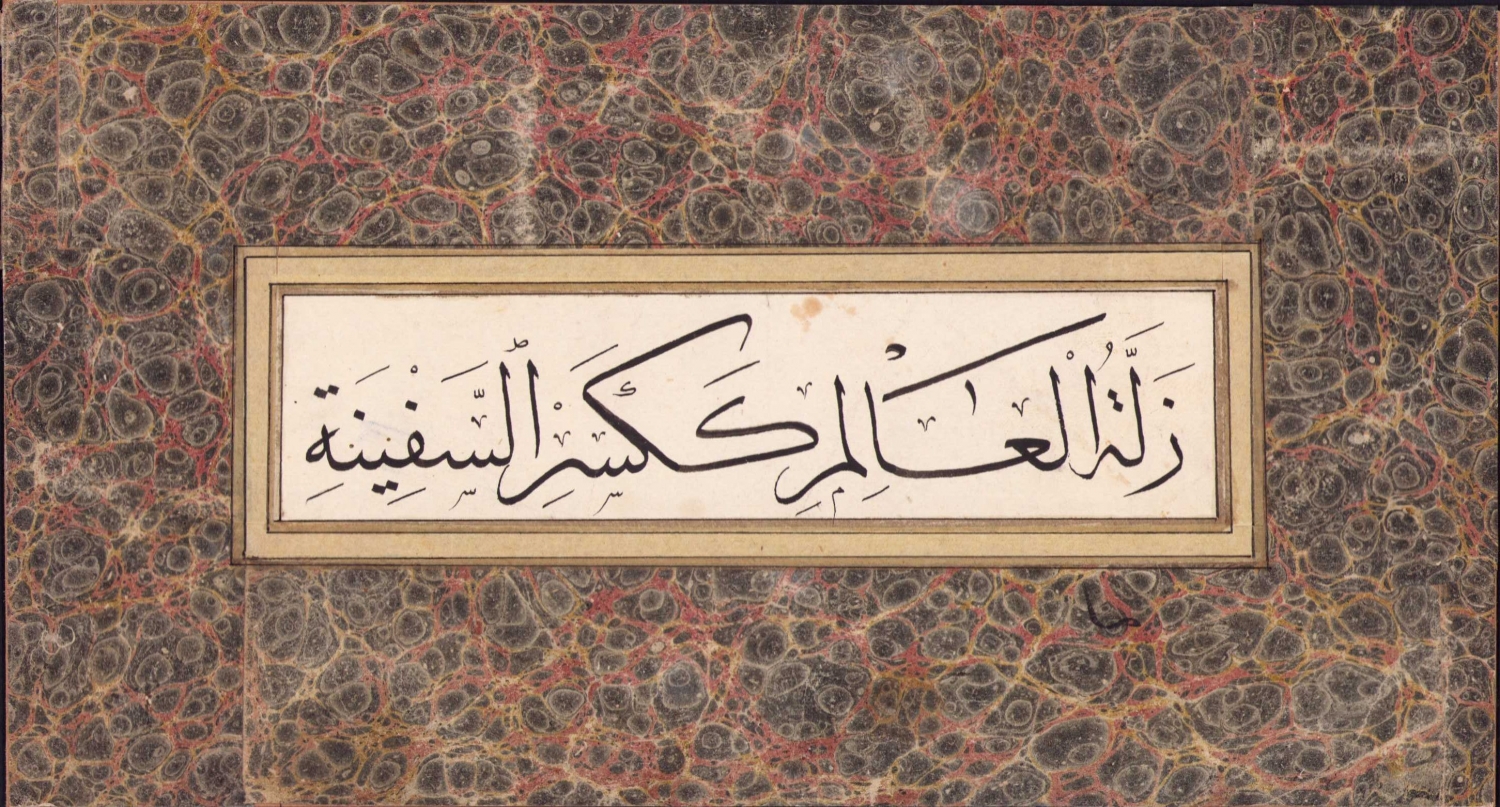 زَلَّةُ الْعَالِمِ كَكَسْرِ السَّفِينَةِ